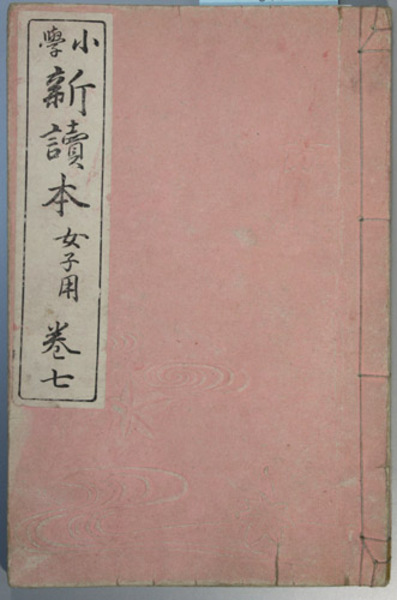 小學
新讀本 女子用 卷七